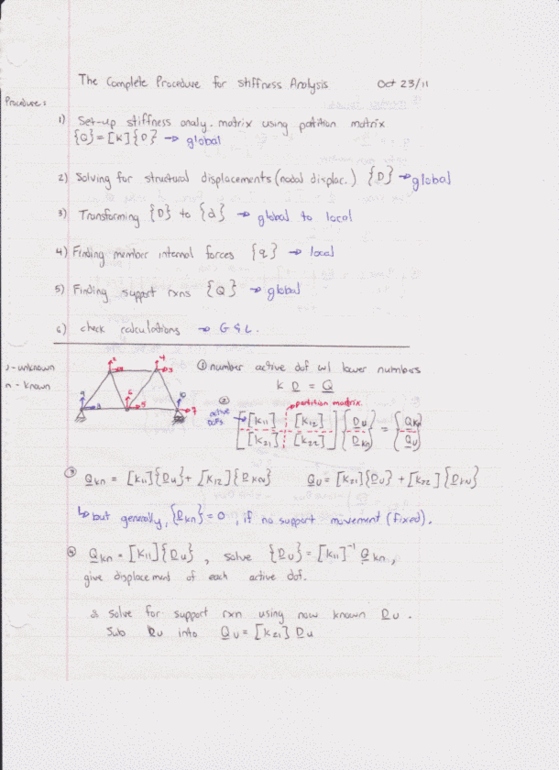 The Complete Procedure for Stiffness Analysis Oct 23/11
Procedure:
1) Set-up stiffness analy. matrix using partition matrix
{Q}=[K]{D} → global
2) Solving for structural displacements (nodal displac.) {D} → global
3) Transforming {D} to {d} → global to local
4) Finding member internal forces {q} → local
5) Finding support rxns {Q} → global
6) check calculations → G & L.
u - unknown
n - known
① number active dof w/ lower numbers
k D = Q
② partition matrix
active DOFs → [[K11] [K12] [K21] [K22]] {Du Dkn} = {Qkn Qu}
③ Qkn = [K11]{Du} + [K12]{Dkn} Qu = [K21]{Du} + [K22]{Dkn}
↳ but generally, {Dkn} = 0, if no support movement (fixed).
④ Qkn = [K11]{Du}, solve {Du} = [K11]⁻¹ Qkn,
give displacement of each active dof.
solve for support rxn using now known Du.
Sub Du into Qu = [K21] Du